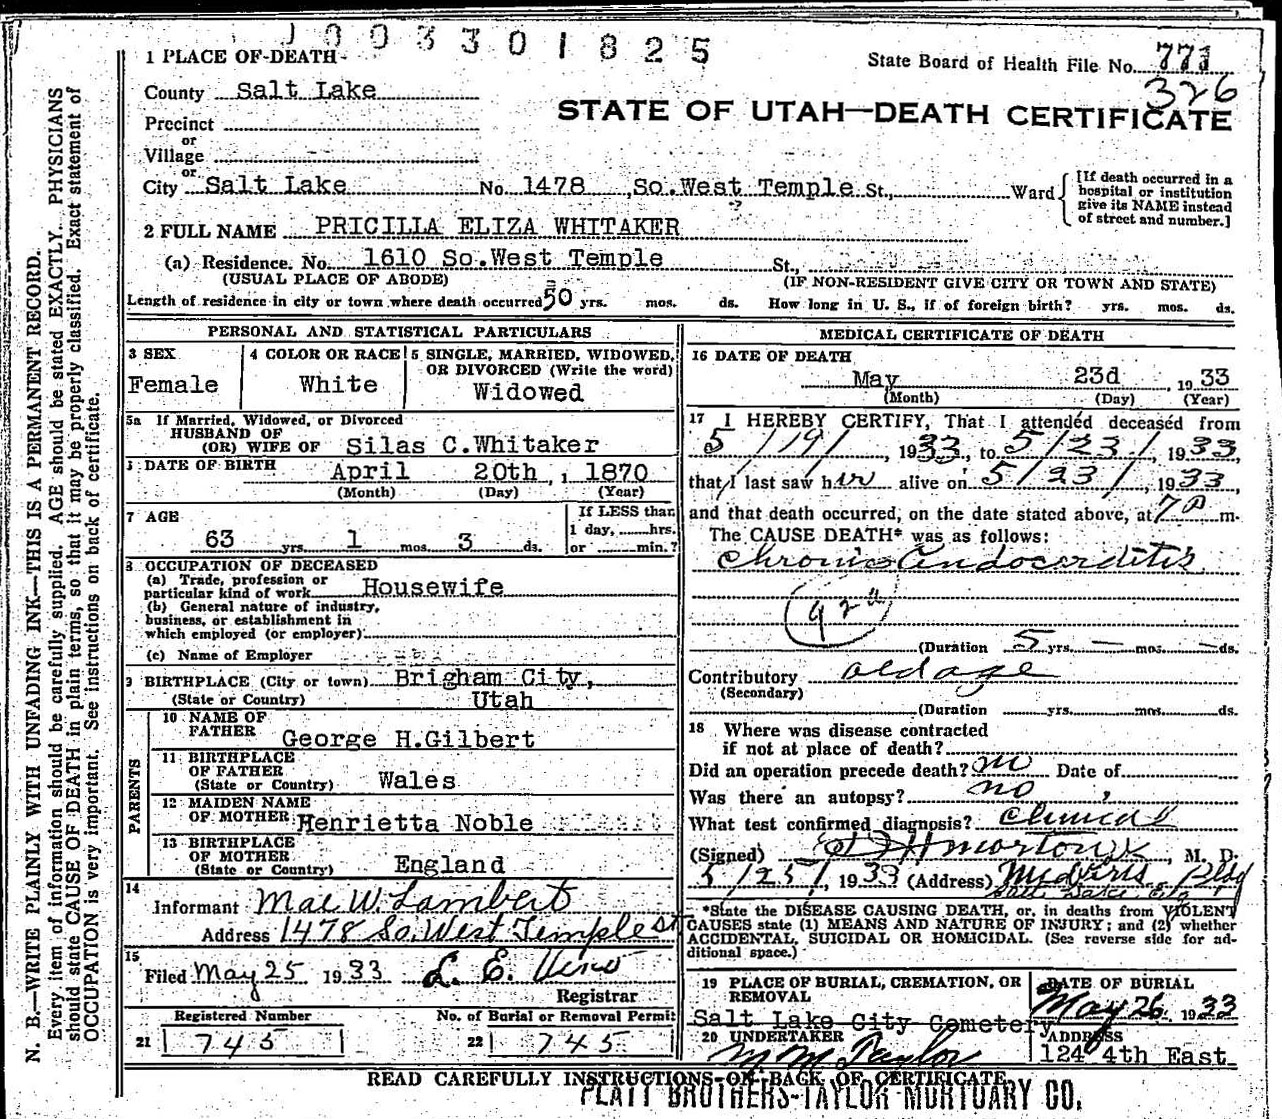 1003301825
1 PLACE OF DEATH
State Board of Health File No. 771
326
County Salt Lake
STATE OF UTAH—DEATH CERTIFICATE
Precinct
or
Village
or
City Salt Lake No. 1478 So.West Temple St., Ward
[If death occurred in a hospital or institution give its NAME instead of street and number.]
2 FULL NAME PRICILLA ELIZA WHITAKER
(a) Residence. No. 1610 So.West Temple St.,
(USUAL PLACE OF ABODE) (IF NON-RESIDENT GIVE CITY OR TOWN AND STATE)
Length of residence in city or town where death occurred 50 yrs. mos. ds. How long in U. S., if of foreign birth? yrs. mos. ds.
PERSONAL AND STATISTICAL PARTICULARS
3 SEX
Female
4 COLOR OR RACE
White
5 SINGLE, MARRIED, WIDOWED, OR DIVORCED (Write the word)
Widowed
5a If Married, Widowed, or Divorced
HUSBAND OF
(OR) WIFE OF Silas C.Whitaker
DATE OF BIRTH April 20th, 1870
(Month) (Day) (Year)
7 AGE
63 yrs. 1 mos. 3 ds.
If LESS than
1 day, hrs.
or min.?
8 OCCUPATION OF DECEASED
(a) Trade, profession or
particular kind of work Housewife
(b) General nature of industry,
business, or establishment in
which employed (or employer)
(c) Name of Employer
9 BIRTHPLACE (City or town) Brigham City,
(State or Country) Utah
PARENTS
10 NAME OF
FATHER George H.Gilbert
11 BIRTHPLACE
OF FATHER
(State or Country) Wales
12 MAIDEN NAME
OF MOTHER Henrietta Noble
13 BIRTHPLACE
OF MOTHER
(State or Country) England
14
Informant Mae W. Lambert
Address 1478 So. West Temple St
15
Filed May 25 1933 L. E.
Registrar
Registered Number
21 745
No. of Burial or Removal Permit
22 745
MEDICAL CERTIFICATE OF DEATH
16 DATE OF DEATH
May 23d, 1933
(Month) (Day) (Year)
17 I HEREBY CERTIFY, That I attended deceased from
5/19/, 1933, to 5/23/, 1933,
that I last saw her alive on 5/23/, 1933,
and that death occurred, on the date stated above, at 7 P m.
The CAUSE DEATH* was as follows:
Chronic Endocarditis
92a
(Duration 5 yrs. — mos. — ds.
Contributory old age
(Secondary)
(Duration yrs. mos. ds.
18 Where was disease contracted
if not at place of death?
Did an operation precede death? no Date of
Was there an autopsy? no
What test confirmed diagnosis? Clinical
(Signed) , M. D.
5/25/, 1933 (Address) Bldg
Salt Lake City
*State the DISEASE CAUSING DEATH, or, in deaths from VIOLENT
CAUSES state (1) MEANS AND NATURE OF INJURY; and (2) whether
ACCIDENTAL, SUICIDAL OR HOMICIDAL. (See reverse side for ad-
ditional space.)
19 PLACE OF BURIAL, CREMATION, OR
REMOVAL
Salt Lake City Cemetery
DATE OF BURIAL
May 26, 1933
20 UNDERTAKER
M M Taylor
ADDRESS
124 4th East
READ CAREFULLY INSTRUCTIONS ON BACK OF CERTIFICATE
PLATT BROTHERS-TAYLOR MORTUARY CO.
N. B.—WRITE PLAINLY WITH UNFADING INK—THIS IS A PERMANENT RECORD.
Every item of information should be carefully supplied. AGE should be stated EXACTLY. PHYSICIANS
should state CAUSE OF DEATH in plain terms, so that it may be properly classified. Exact statement of
OCCUPATION is very important. See instructions on back of certificate.